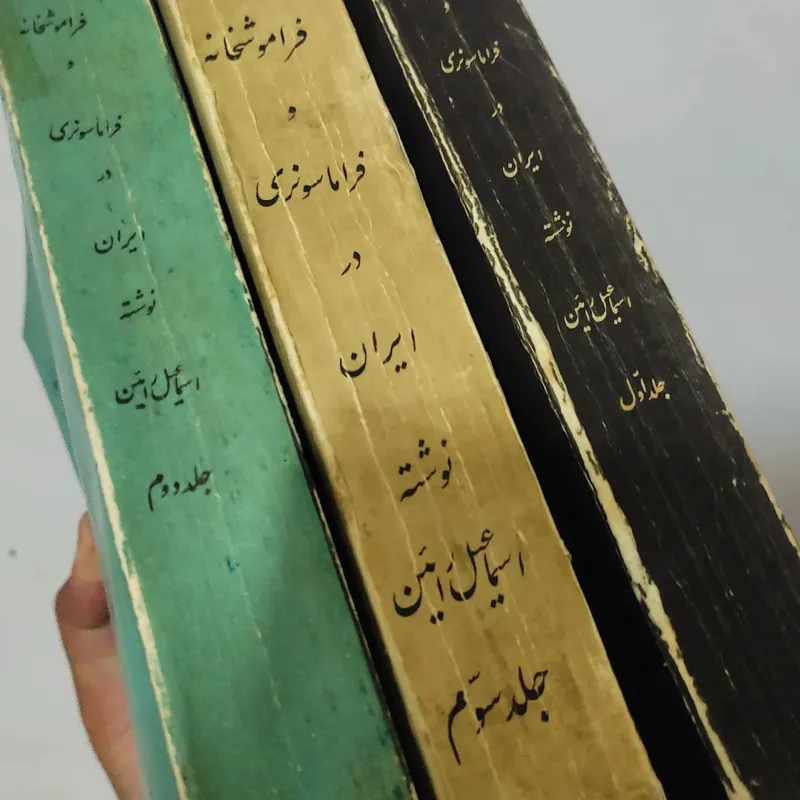 فراموشخانه
و
فراماسونری
در
ایران
نوشته
اسماعیل رائین
جلد دوم
فراموشخانه
و
فراماسونری
در
ایران
نوشته
اسماعیل رائین
جلد سوّم
و
فراماسونری
در
ایران
نوشته
اسماعیل رائین
جلد اوّل